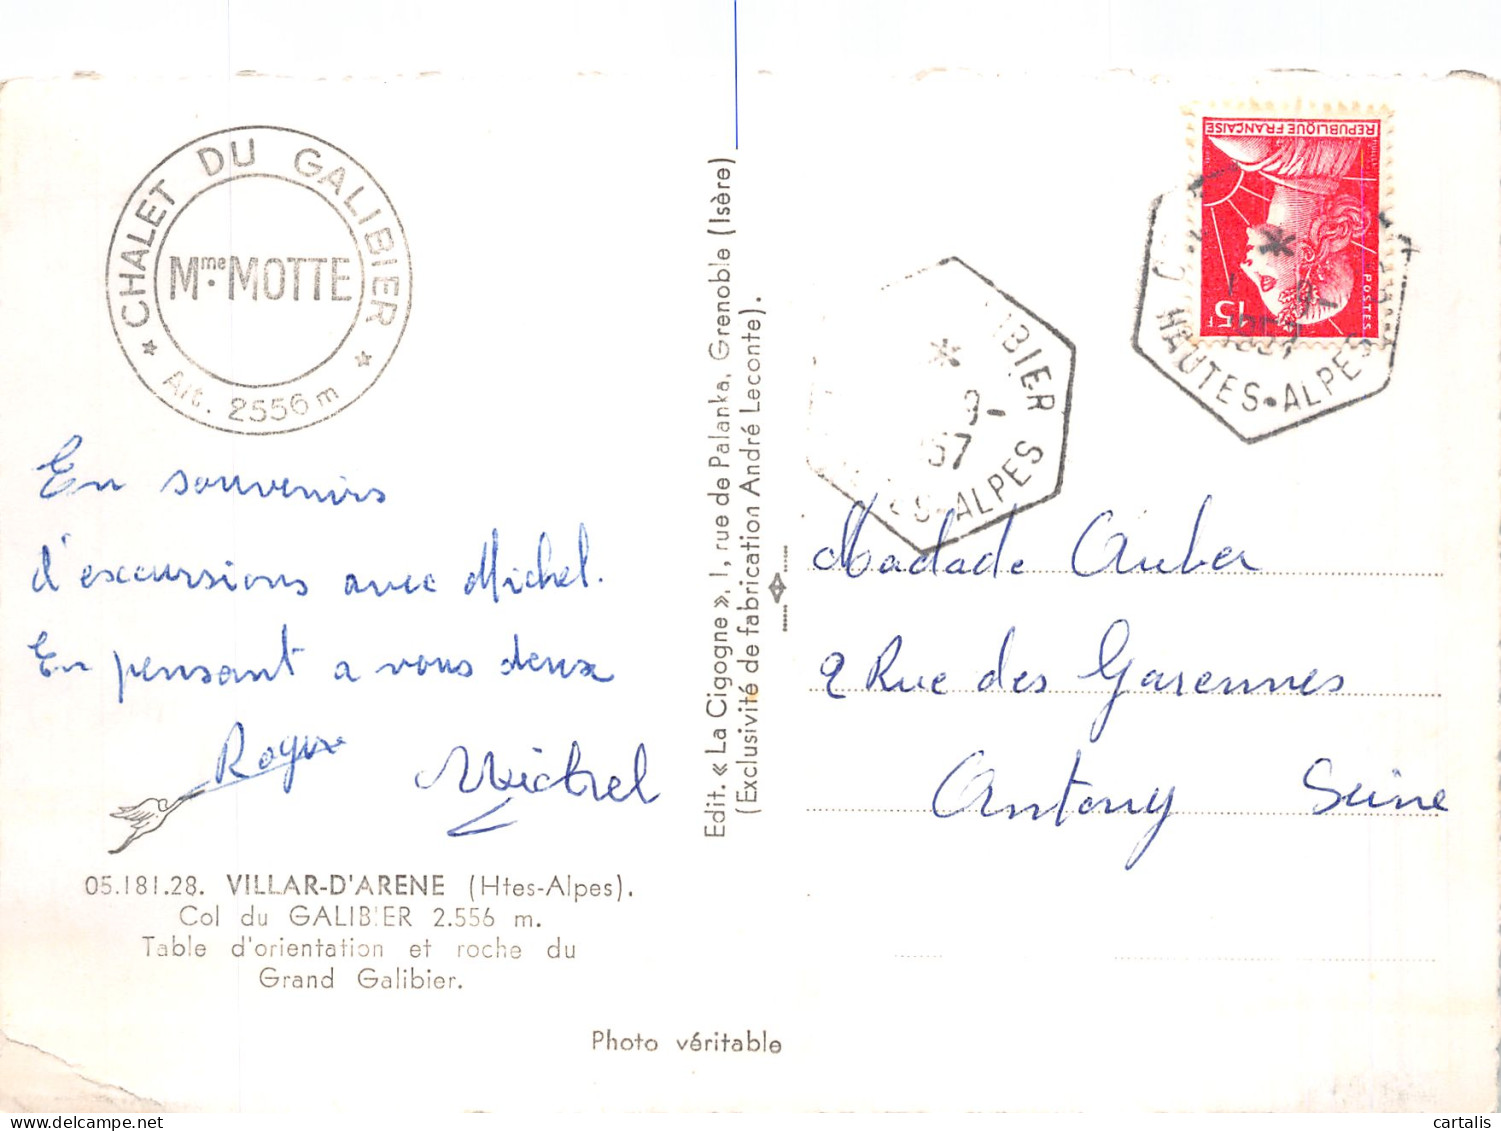 CHALET DU GALIBIER
Mme MOTTE
Alt. 2556 m
En souvenirs
d'excursions avec Michel.
En pensant a vous deux
Michel
05.181.28. VILLAR-D'ARENE (Htes-Alpes).
Col du GALIBIER 2.556 m.
Table d'orientation et roche du
Grand Galibier.
Photo véritable
Edit. « La Cigogne », 1, rue de Palanka, Grenoble (Isère)
(Exclusivité de fabrication André Leconte).
REPUBLIQUE FRANÇAISE
POSTES
15F
HAUTES-ALPES
1957
IBIER
9-
57
ES-ALPES
Madade Auber
2 Rue des Garennes
Antony Seine
cartalis